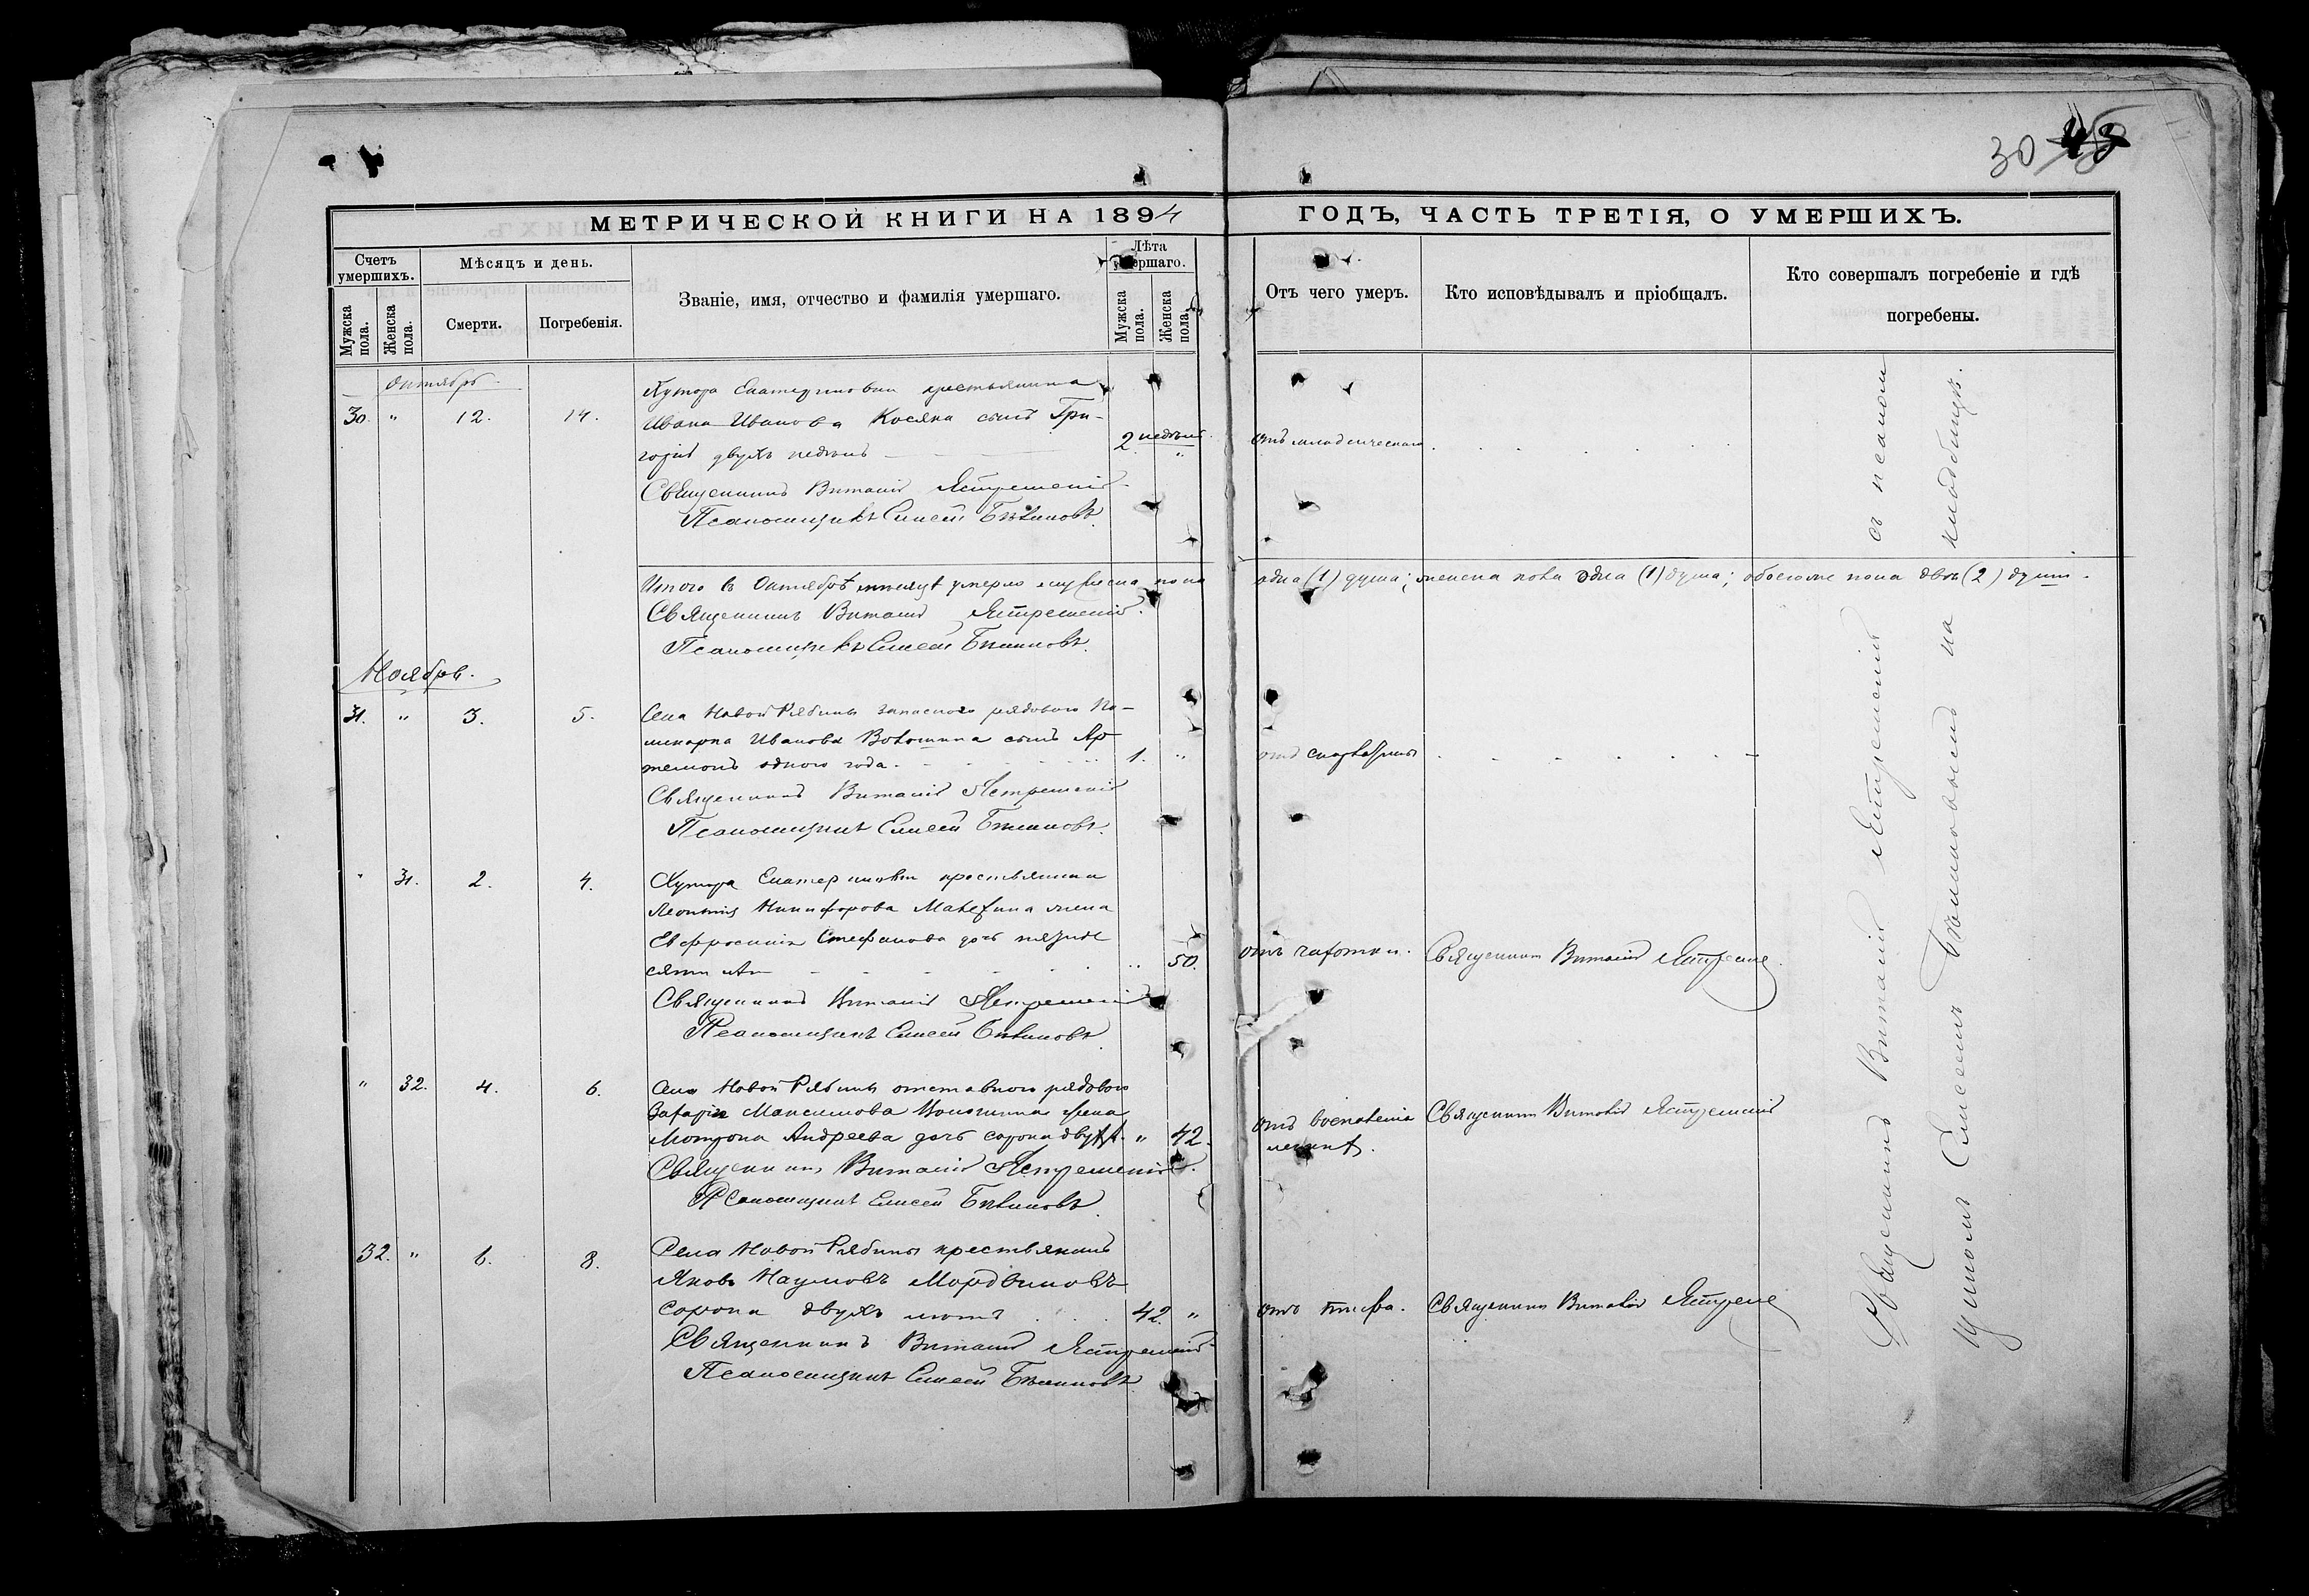 30 43
МЕТРИЧЕСКОЙ КНИГИ НА 1894 ГОДЪ, ЧАСТЬ ТРЕТІЯ, О УМЕРШИХЪ.
Счетъ умершихъ.
Мужска пола.
Женска пола.
Мѣсяцъ и день.
Смерти.
Погребенія.
Званіе, имя, отчество и фамилія умершаго.
Лѣта умершаго.
Мужска пола.
Женска пола.
Отъ чего умеръ.
Кто исповѣдывалъ и пріобщалъ.
Кто совершалъ погребеніе и гдѣ погребены.
Октябрь.
30. " 12. 14.
Хутора Екатериновки крестьянина
Ивана Иванова Косяка сынъ Гри-
горій двухъ недѣль
2 недѣль "
отъ младенческой
Священникъ Виталій Ястремскій
Псаломщикъ Елисей Бѣликовъ
Итого въ Октябрѣ мѣсяцѣ умерло мужеска пола одна (1) душа; женска пола одна (1) душа; обоего пола двѣ (2) души.
Священникъ Виталій Ястремскій.
Псаломщикъ Елисей Бѣликовъ.
Ноябрь.
31. " 3. 5.
Села Новой Рябины запаснаго рядового По-
ликарпа Иванова Волошина сынъ Ар-
темонъ одного года.
1. "
отъ скарлатины
Священникъ Виталій Ястремскій
Псаломщикъ Елисей Бѣликовъ.
" 31. 2. 4.
Хутора Екатериновки крестьянина
Леонтія Никифорова жена
Евфросинія Стефанова дочь пятиде
сяти лѣтъ
" 50.
отъ чахотки.
Священникъ Виталій Ястремс
Священникъ Виталій Ястремскій
Псаломщикъ Елисей Бѣликовъ.
" 32. 4. 6.
Села Новой Рябины отставного рядового
Захарія Максимова Волошина жена
Мотрона Андреева дочь сорока двухъ л.
" 42.
отъ воспаленія
легкихъ.
Священникъ Виталій Ястремскій
Священникъ Виталій Ястремскій.
Псаломщикъ Елисей Бѣликовъ.
32. " 6. 8.
Села Новой Рябины крестьянинъ
Яковъ Наумовъ Мордвиновъ
сорока двухъ лѣтъ
42. "
отъ тифа.
Священникъ Виталій Ястремс
Священникъ Виталій Ястремскій
Псаломщикъ Елисей Бѣликовъ
Священникъ Виталій Ястремскій съ псалом
щикомъ Елисеемъ Бѣликовымъ на кладбищѣ.